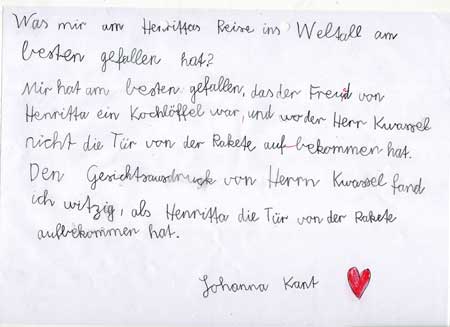 Was mir am Henrittas Reise ins Weltall am
besten gefallen hat?
Mir hat am besten gefallen, das der Freud von
Henritta ein Kochlöffel war, und wo der Herr Kwassel
nicht die Tür von der Rakete aufbekommen hat.
Den Gesichtsausdruck von Herrn Kwassel fand
ich witzig, als Henritta die Tür von der Rakete
aufbekommen hat.
Johanna Kant